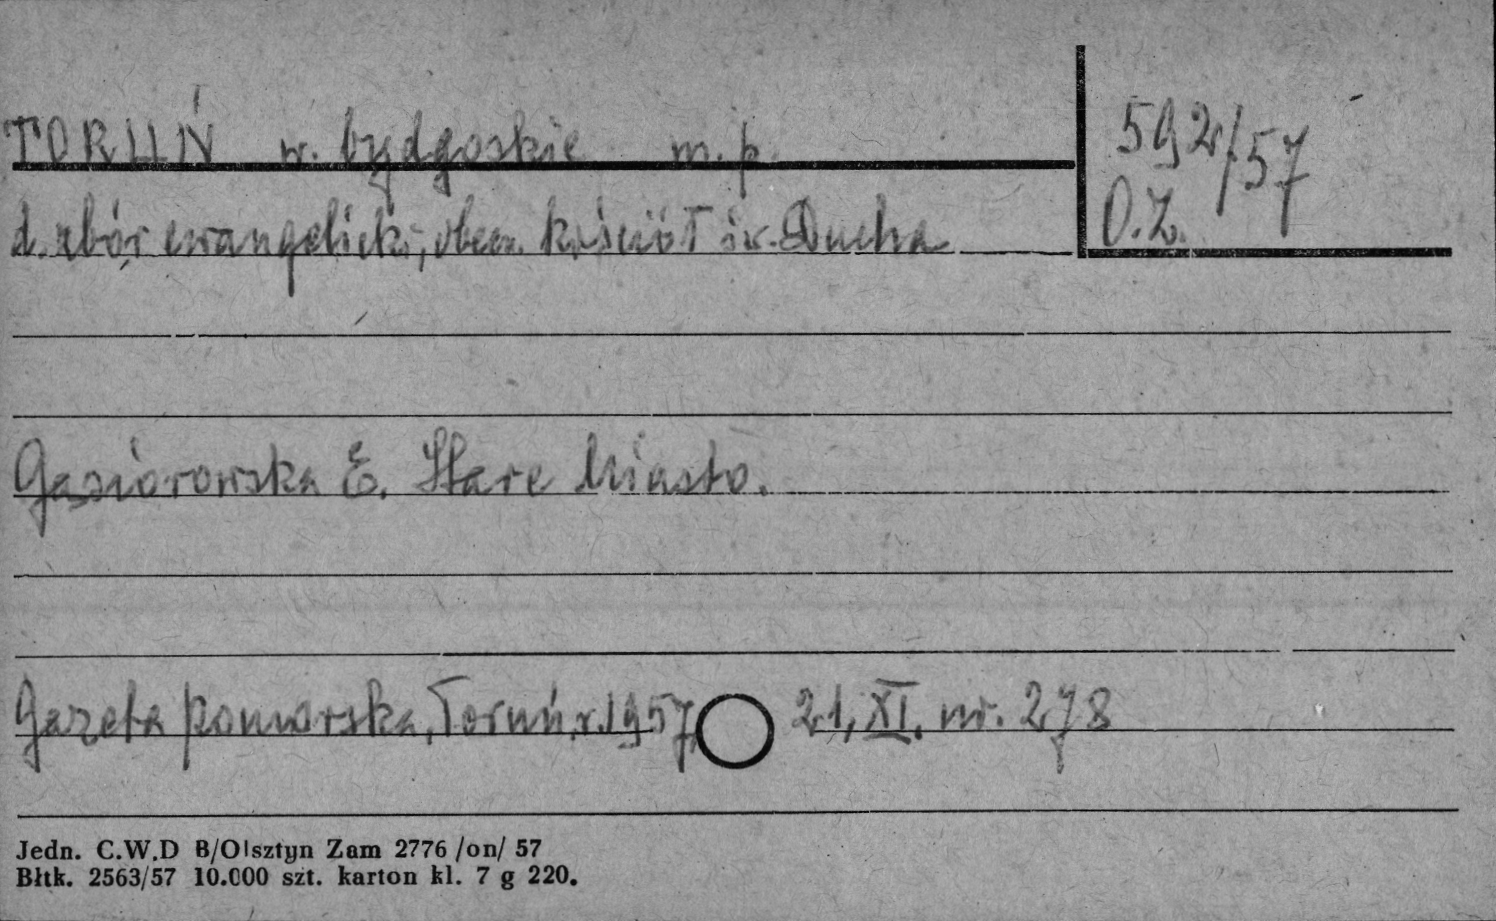 TORUŃ w. bydgoskie m. p.
592/57
d. zbór ewangelicki, obecn. kościół św. Ducha
O.Z.
Gąsiorowska E. Stare Miasto.
Gazeta Pomorska, Toruń, r. 1957, 21, XI, nr. 278
Jedn. C.W.D B/Olsztyn Zam 2776 /on/ 57
Błtk. 2563/57 10.000 szt. karton kl. 7 g 220.